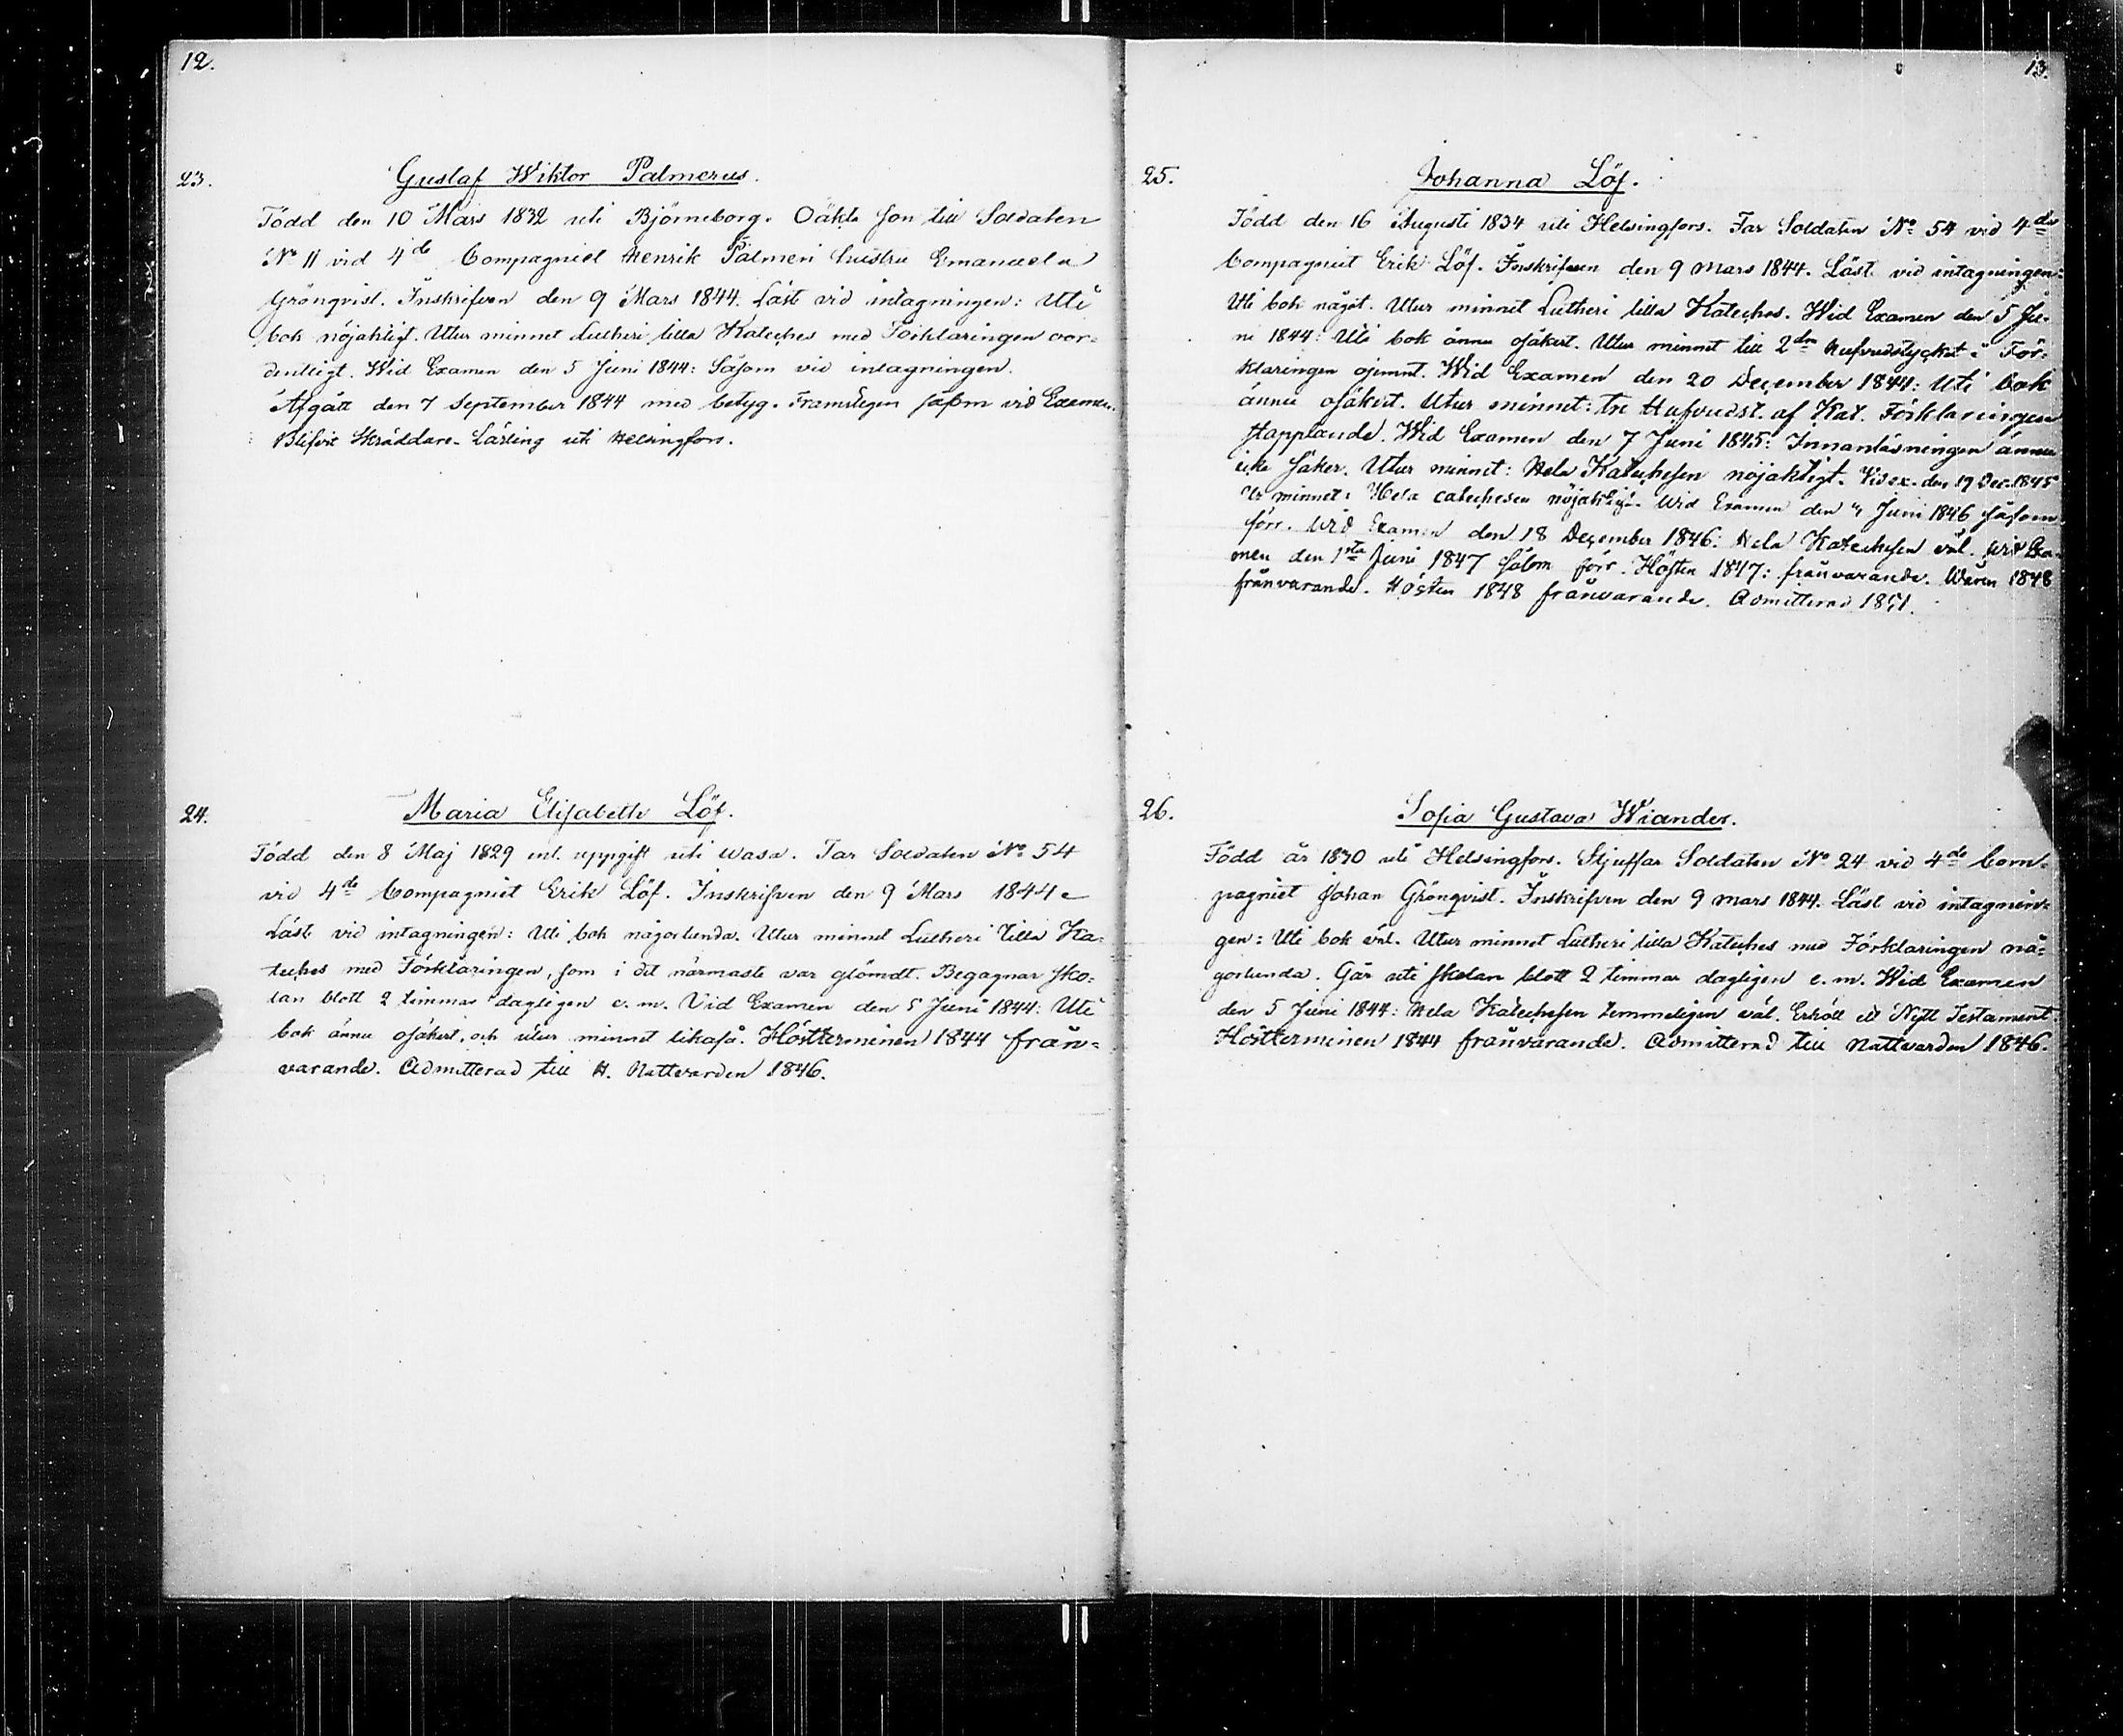 12.
23.
Gustaf Wiktor Palmerus.
Född den 10 Mars 1832 uti Björneborg. Oäkta son till Soldaten
No 11 vid 4de Compagniet Henrik Palmeri hustru Emanuela
Grönqvist. Inskrifven den 9 Mars 1844. Läste vid intagningen: Uti
bok nöjaktigt. Utur minnet Lutheri lilla Kateches med Förklaringen oor-
dentligt. Wid Examen den 5 Juni 1844: Såsom vid intagningen.
Afgått den 7 September 1844 med betyg. Framstegen såsom vid Examen.
Blifvit Skräddare-Lärling uti Helsingfors.
24.
Maria Elisabeth Löf.
Född den 8 Maj 1829 enl. uppgift uti Wasa. Far Soldaten No 54
vid 4de Compagniet Erik Löf. Inskrifven den 9 Mars 1844
Läste vid intagningen: Uti bok någorlunda. Utur minnet Lutheri lilla Ka-
teches med Förklaringen, som i det närmaste var glömdt. Begagnar sko-
lan blott 2 timmar dagligen e. m. Vid Examen den 5 Juni 1844: Uti
bok ännu osäkert, och utur minnet likaså. Höstterminen 1844 från-
varande. Admitterad till H. Nattvarden 1846.
13.
25.
Johanna Löf.
Född den 16 Augusti 1834 uti Helsingfors. Far Soldaten No 54 vid 4de
Compagniet Erik Löf. Inskrifven den 9 Mars 1844. Läste vid intagningen:
Uti bok något. Utur minnet Lutheri lilla Kateches. Wid Examen den 5 Ju-
ni 1844: Uti bok ännu osäkert. Utur minnet till 2dra Hufvudstycket i För-
klaringen ojemnt. Wid Examen den 20 December 1844: Uti bok
ännu osäkert. Utur minnet: tre Hufvudst. af Kat. Förklaringen
stapplande. Wid Examen den 7 Juni 1845: Innanläsningen ännu
icke säker. Utur minnet: Hela Katechesen nöjaktigt. Vid ex. den 19 Dec. 1845
Ur minnet: Hela catechesen nöjaktigt. Wid Examen den 4 Juni 1846 såsom
förr. Wid Examen den 18 December 1846: Hela Katechesen väl. Wid Exa-
men den 1sta Juni 1847 såsom förr. Hösten 1847: frånvarande. Wåren 1848
frånvarande. Hösten 1848 frånvarande. Admitterad 1851.
26.
Sofia Gustava Wiander.
Född år 1830 uti Helsingfors. Stjuffar Soldaten No 24 vid 4de Com-
pagniet Johan Grönqvist. Inskrifven den 9 Mars 1844. Läst vid intagnin-
gen: Uti bok väl. Utur minnet Lutheri lilla Kateches med Förklaringen nå-
gorlunda. Går uti skolan blott 2 timmar dagligen e. m. Wid Examen
den 5 Juni 1844: Hela Katechesen temmeligen väl. Erhöll ett Nytt Testament.
Höstterminen 1844 frånvarande. Admitterad till Nattvarden 1846.